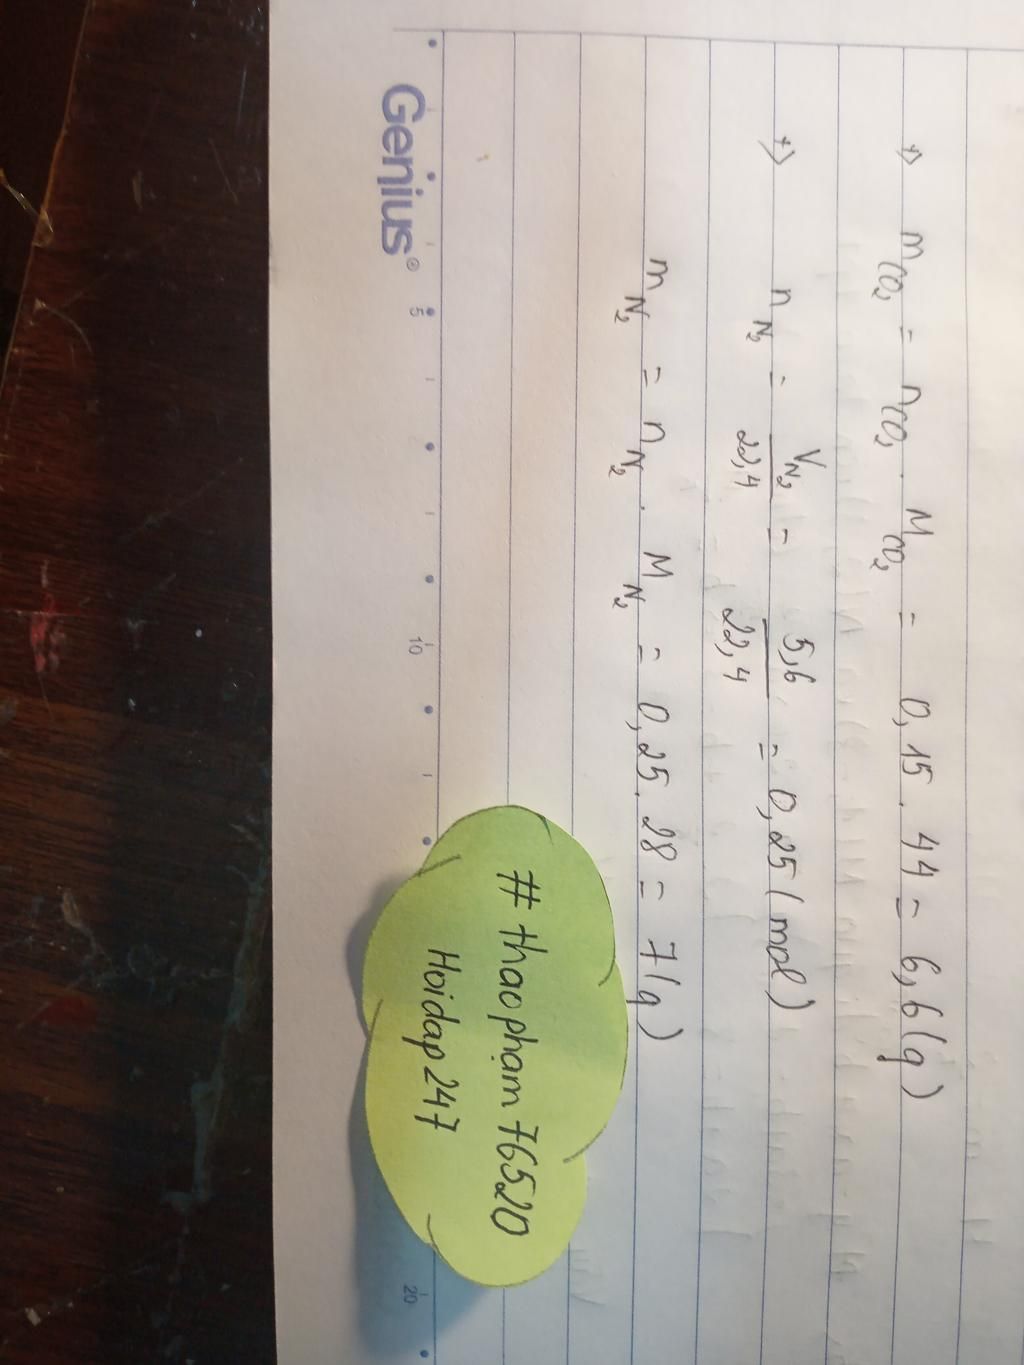 +) mCO₂ = nCO₂ . MCO₂ = 0,15 . 44 = 6,6 (g)
+) nN₂ = VN₂/22,4 = 5,6/22,4 = 0,25 (mol)
mN₂ = nN₂ . MN₂ = 0,25 . 28 = 7 (g)
# thaophạm76520
Hoidap247
Genius® 5 10 20